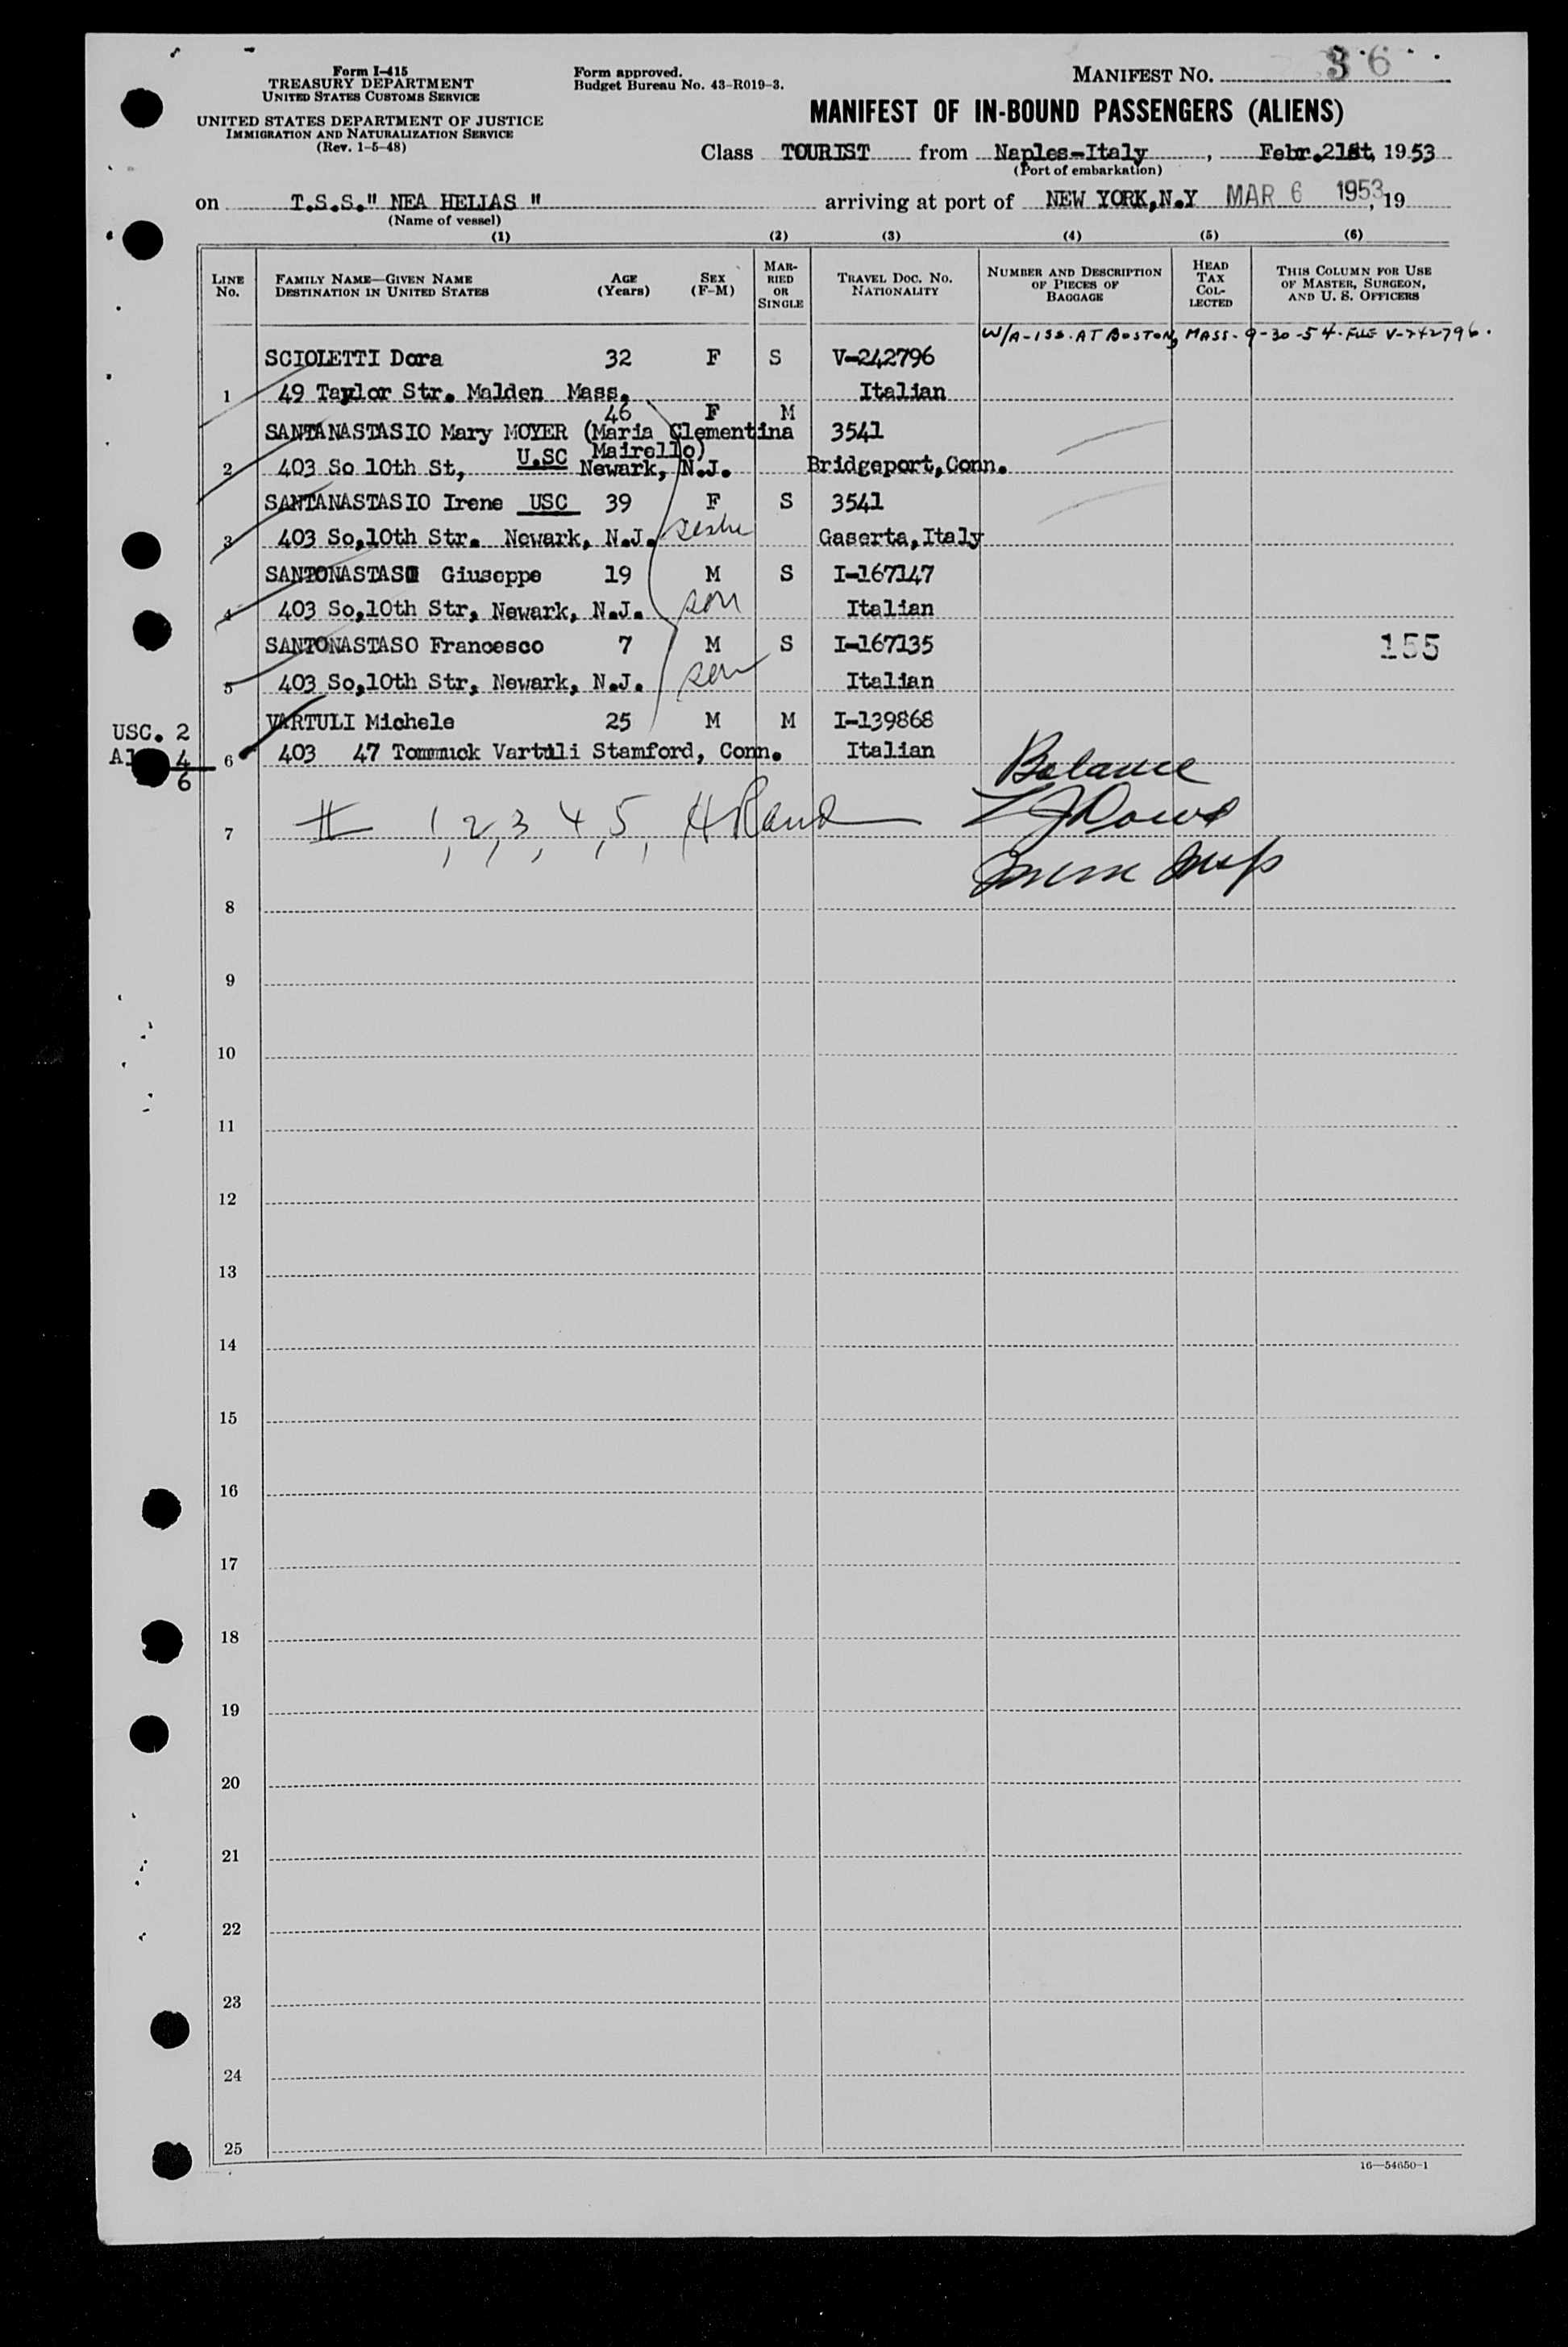 Form I-415
TREASURY DEPARTMENT
UNITED STATES CUSTOMS SERVICE
UNITED STATES DEPARTMENT OF JUSTICE
IMMIGRATION AND NATURALIZATION SERVICE
(Rev. 1-5-48)
Form approved.
Budget Bureau No. 43-R019-3.
MANIFEST NO. 36
MANIFEST OF IN-BOUND PASSENGERS (ALIENS)
Class TOURIST from Naples-Italy, Febr. 21st, 1953
(Port of embarkation)
on T.S.S." NEA HELIAS " arriving at port of NEW YORK, N.Y MAR 6 1953, 19
(Name of vessel)
(1) (2) (3) (4) (5) (6)
LINE No. FAMILY NAME—GIVEN NAME DESTINATION IN UNITED STATES AGE (Years) SEX (F-M) MARRIED OR SINGLE TRAVEL DOC. NO. NATIONALITY NUMBER AND DESCRIPTION OF PIECES OF BAGGAGE HEAD TAX COLLECTED THIS COLUMN FOR USE OF MASTER, SURGEON, AND U. S. OFFICERS
W/A-ISS. AT BOSTON, MASS- 9-30-54. FILE V-242796.
SCIOLETTI Dora 32 F S V-242796
1 49 Taylor Str. Malden Mass. Italian
46 F M
SANTANASTASIO Mary MOYER (Maria Clementina 3541
U.SC Mairello)
2 403 So 10th St, Newark, N.J. Bridgeport, Conn.
SANTANASTASIO Irene USC 39 F S 3541
3 403 So,10th Str. Newark, N.J. Gaserta, Italy
SANTONASTASO Giuseppe 19 M S I-167147
4 403 So,10th Str, Newark, N.J. son Italian
SANTONASTASO Francesco 7 M S I-167135 155
5 403 So,10th Str, Newark, N.J. son Italian
VARTULI Michele 25 M M I-139868
USC. 2
Al 4
6
6 403 47 Tommuck Vartuli Stamford, Conn. Italian
Balance
7 1, 2, 3, 4, 5,
8
9
10
11
12
13
14
15
16
17
18
19
20
21
22
23
24
25
16—54650-1